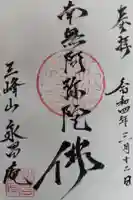 奉拝
令和四年二月十二日
南無阿弥陀佛
三峰山 永昌庵